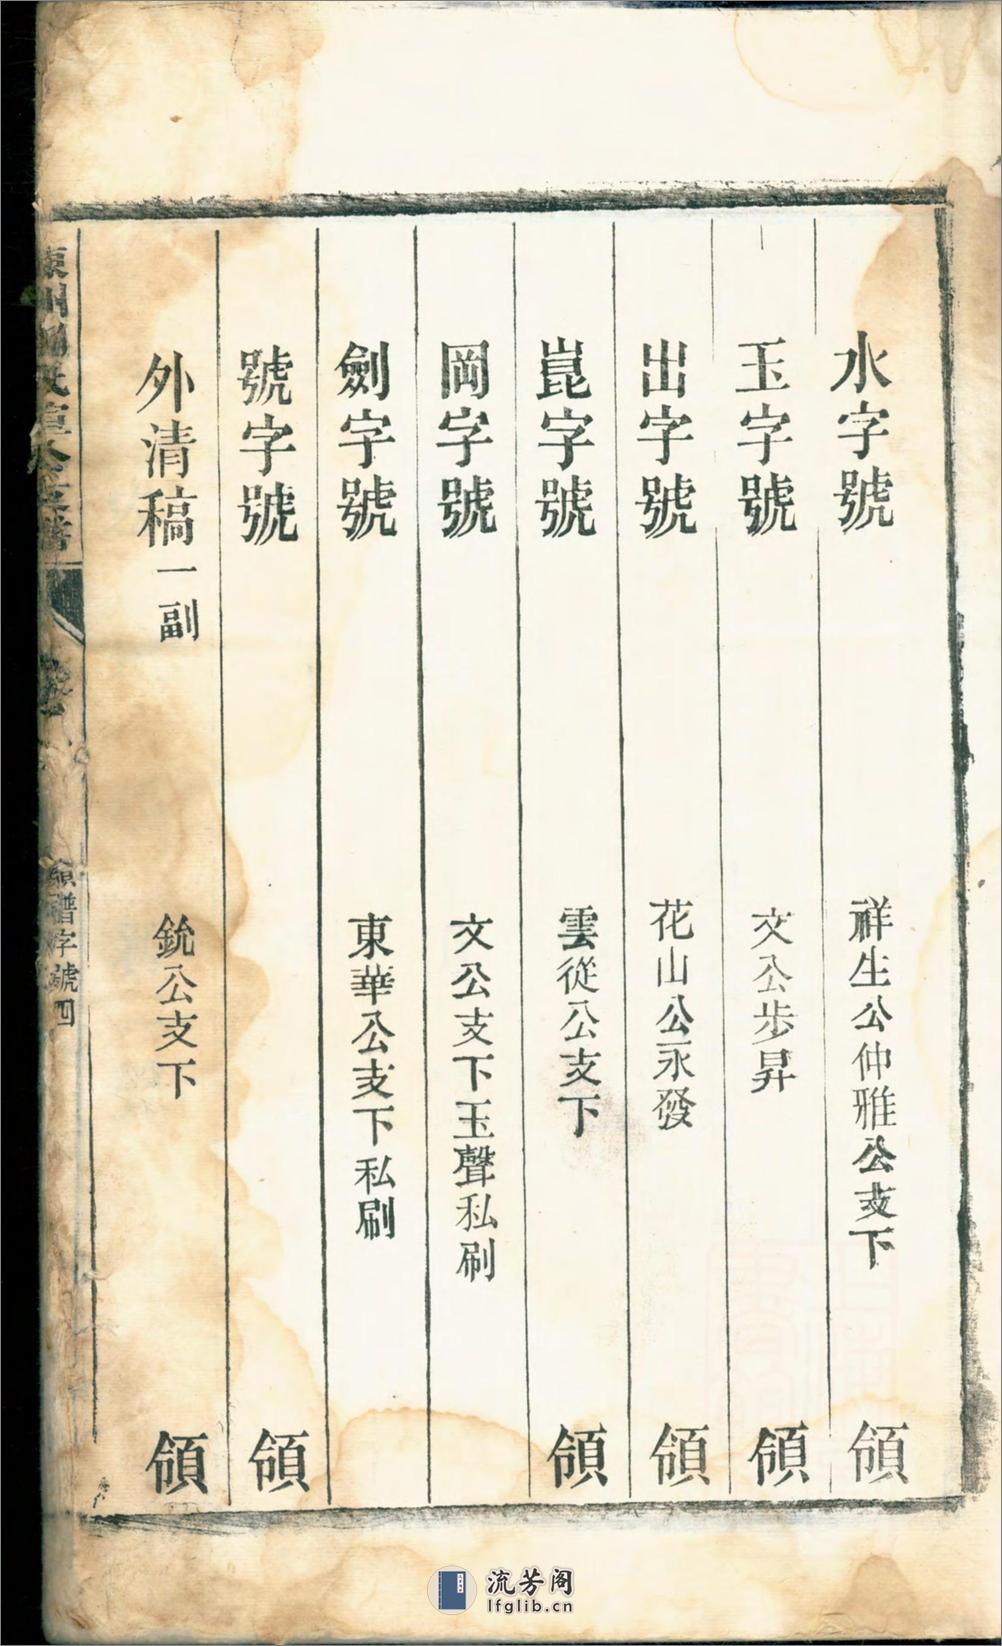 水字號 祥生公仲雅公支下 領
玉字號 文公步昇 領
出字號 花山公永發 領
崑字號 雲從公支下 領
岡字號 文公支下玉聲私刷
劍字號 東華公支下私刷
號字號 領
外清稿一副 銃公支下 領
領譜字號 四
流芳阁
lfglib.cn